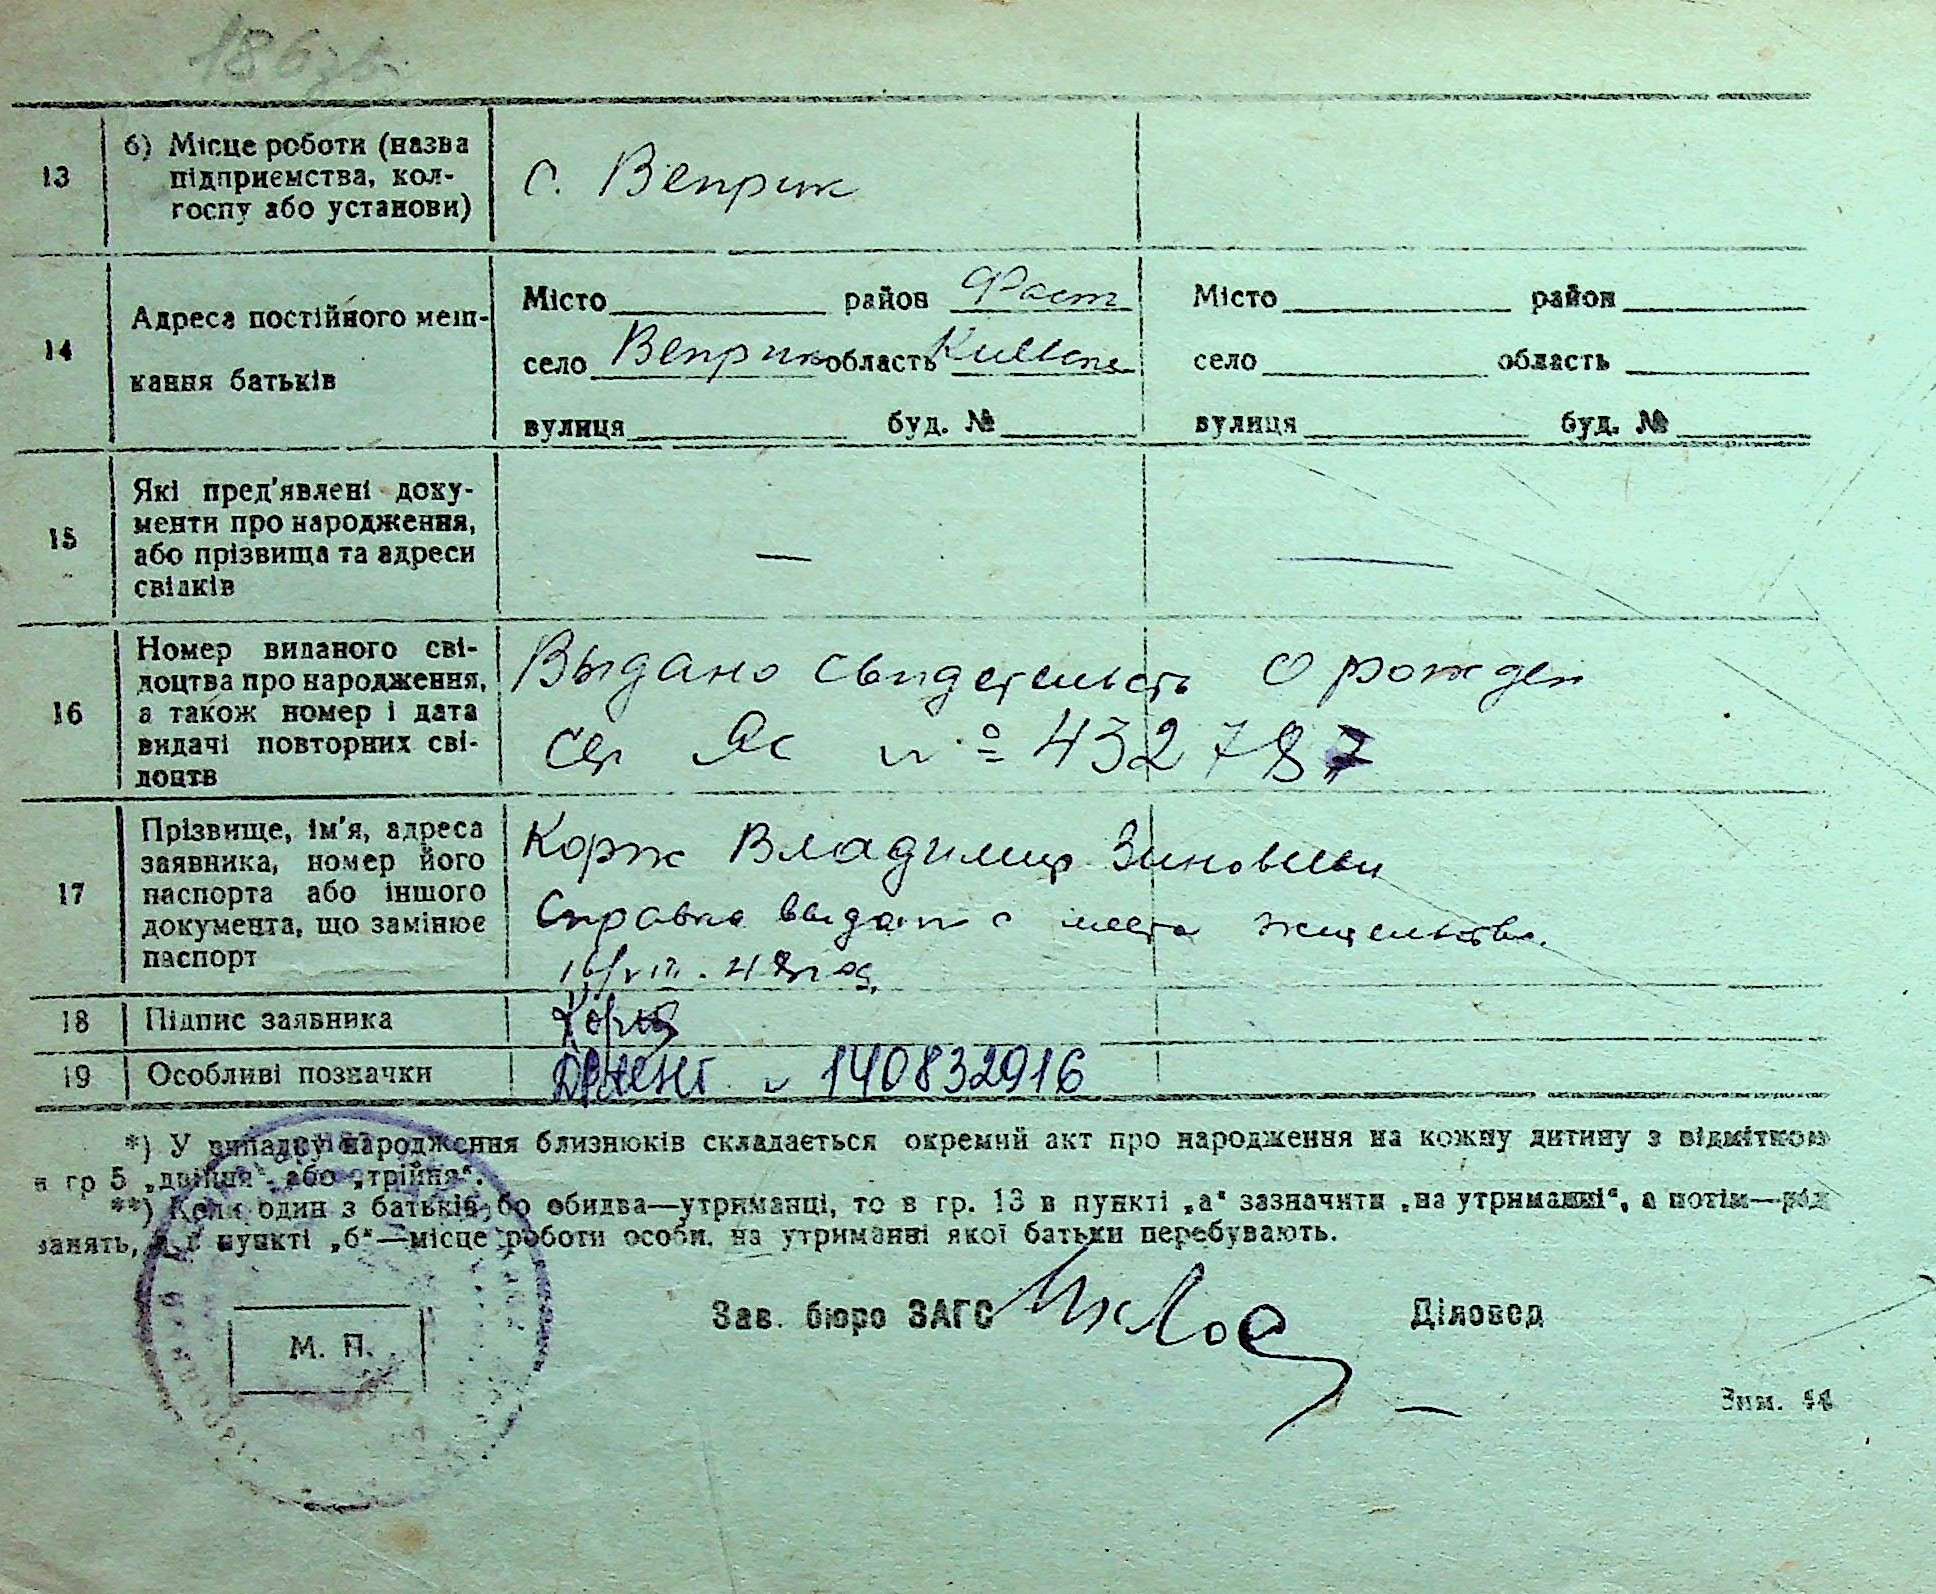 186 зв.
13
б) Місце роботи (назва
підприємства, кол-
госпу або установи)
с. Веприк
14
Адреса постійного меш-
кання батьків
Місто район Фаст
село Веприк область Киевск
вулиця буд. №
Місто район
село область
вулиця буд. №
15
Які пред'явлені доку-
менти про народження,
або прізвища та адреси
свідків
—
—
16
Номер виданого сві-
доцтва про народження,
а також номер і дата
видачі повторних сві-
доцтв
Выдано свидетельсть о рожден
сер Яс № 432787
17
Прізвище, ім'я, адреса
заявника, номер його
паспорта або іншого
документа, що замінює
паспорт
Корж Владимир Зиновьеви
Справка выдан с места жительства.
18
Підпис заявника
Корж
19
Особливі позначки
140832916
*) У випадку народження близнюків складається окремий акт про народження на кожну дитину з відміткою
в гр 5 „двійня“ або „трійня“.
**) Коли один з батьків бо обидва—утриманці, то в гр. 13 в пункті „а“ зазначити „на утриманні“, а потім—рід
занять, а в пункті „б“—місце роботи особи, на утриманні якої батьки перебувають.
М. П.
Зав. бюро ЗАГС
Діловод
—
Зам. 44